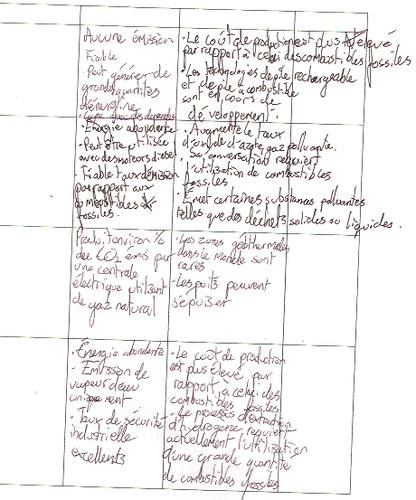 Aucune émission
Fiable
Peut générer de
grandes quantités
d'énergine
• Le coût de production est plus élevé
par rapport à celui des combustibles fossiles
• Les technologies de pile rechargeable
et de pile à combustible
sont en cours de
développement.
• Énergie abondante
• Peut être utilisée
avec des moteurs diesel
Fiable taux d'émission
par rapport aux
combustibles
fossiles.
• Augmente le taux
d'oxyde d'azote, gaz polluante.
• Sa conversation requiert
l'utilisation de combustibles
fossiles
• Émet certaines substances polluantes
telles que des déchets solides ou liquides.
Produit environ %
de CO2 émis par
une centrale
électrique utilisant
de gaz natural
• Les zones géothermales
dans le monde sont
rares
• Les puits peuvent
s'épuiser
• Énergie abondante
• Émission de
vapeur d'eau
uniquement
• Taux de sécurité
industrielle
excellents
• Le coût de production
est plus élevé par
rapport à celui des
combustibles fossiles
• Le processus d'extraction
d'hydrogène requiert
actuellement l'utilisation
d'une grande quantité
de combustibles fossiles